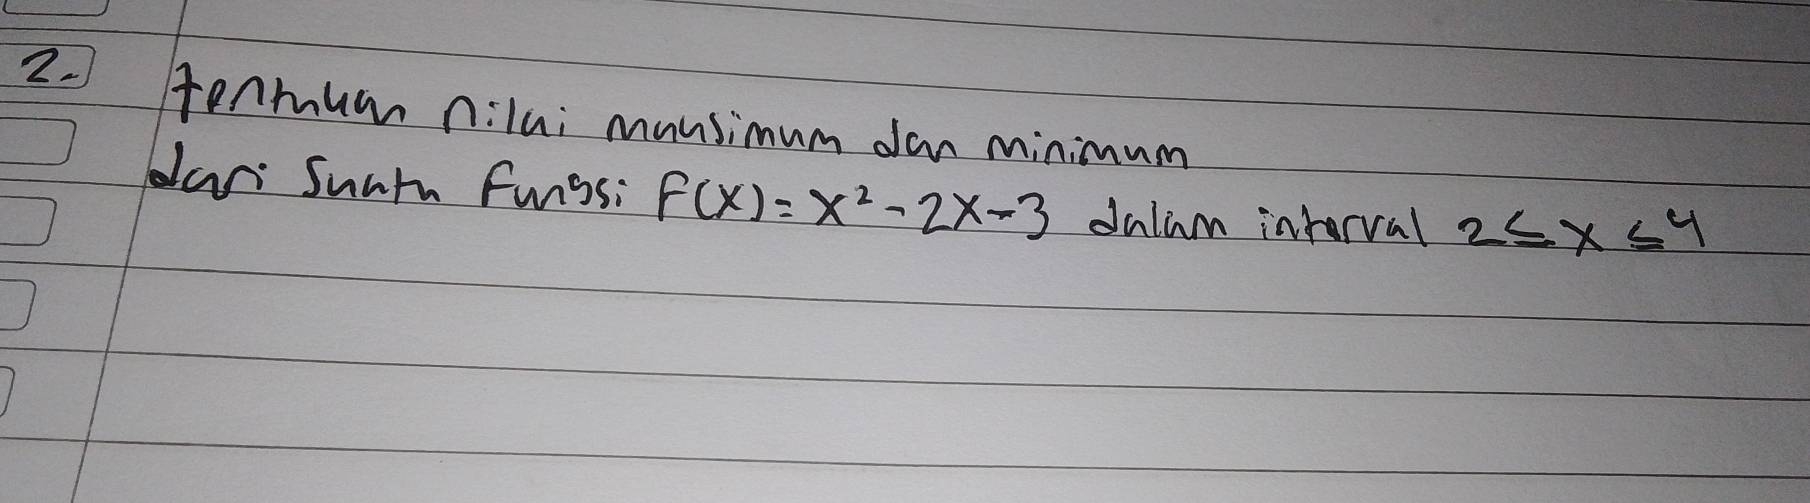 2. tentukan nilai maksimum dan minimum
dari suatu fungsi F(x) = x² - 2x - 3 dalam interval 2 ≤ x ≤ 4